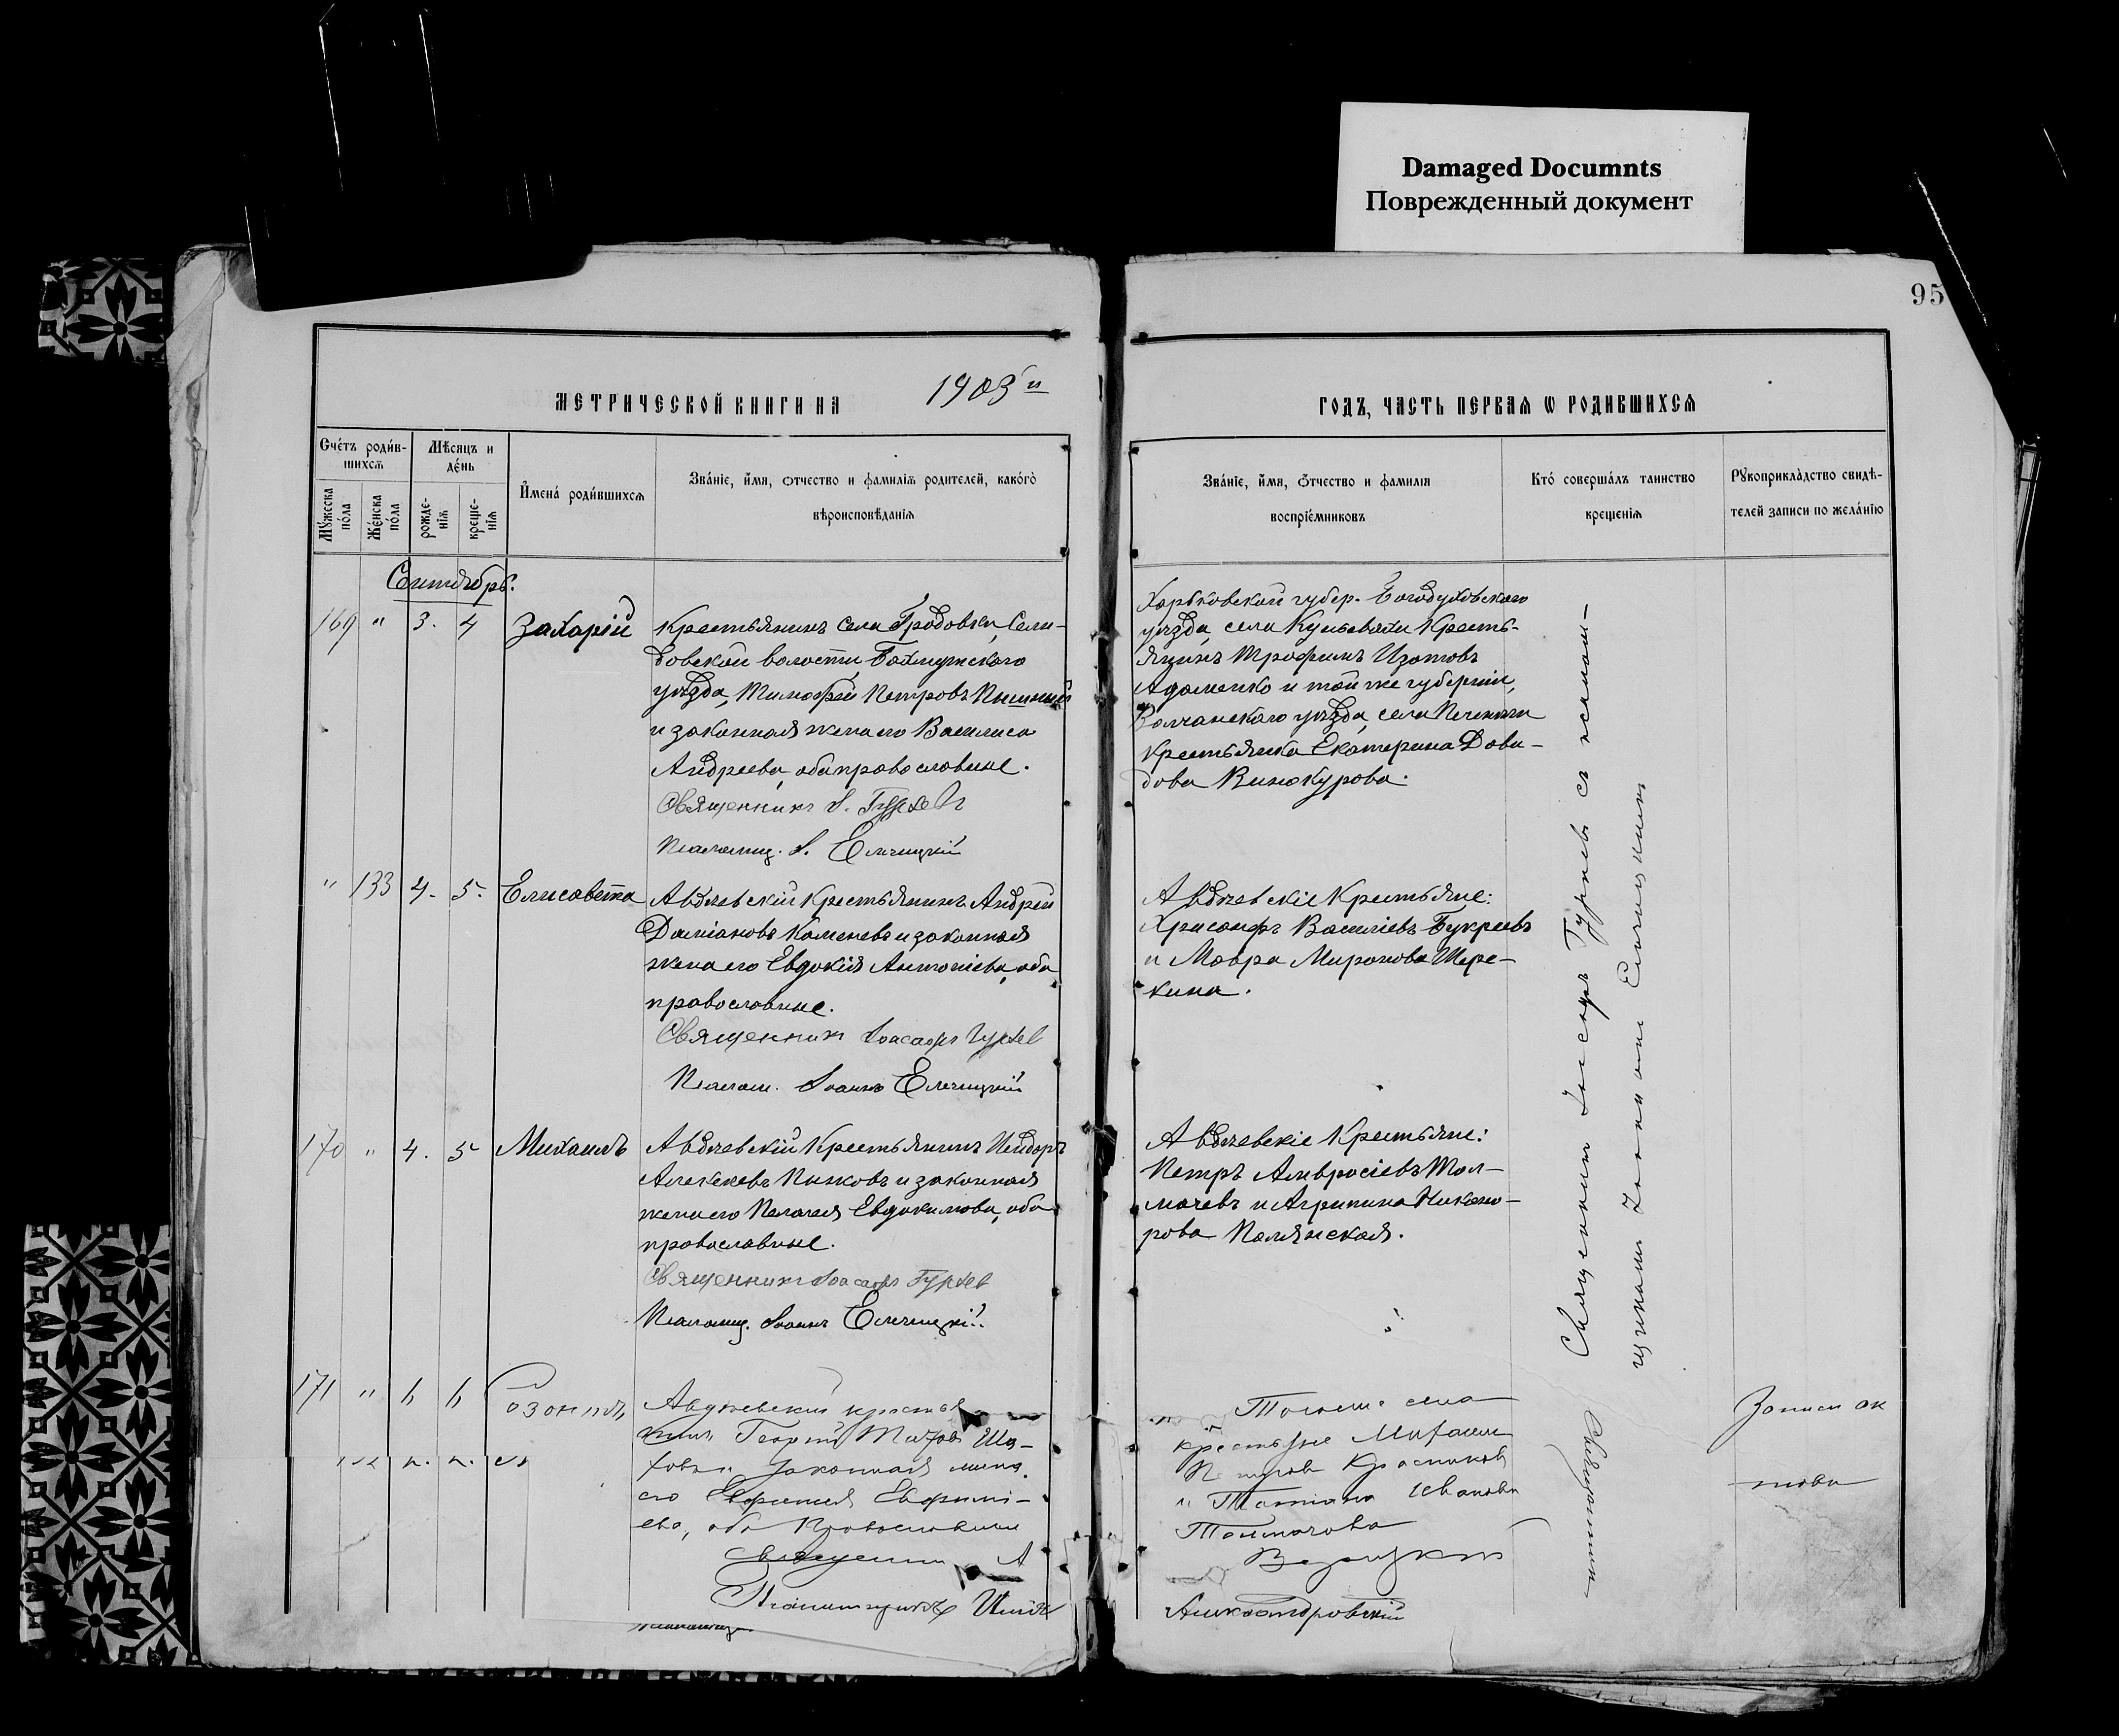 Damaged Documnts
Поврежденный документ
95
МЕТРИЧЕСКОЙ КНИГИ НА 1903й
ГОДЪ, ЧАСТЬ ПЕРВАЯ Ѡ РОДИВШИХСЯ
Счетъ родив-
шихся
Мѣсяцъ и
день
Мужеска
пола
Женска
пола
рожде-
нія
креще-
нія
Имена родившихся
Званіе, имя, отчество и фамилія родителей, какого
вѣроисповѣданія
Званіе, имя, отчество и фамилія
воспріемниковъ
Кто совершалъ таинство
крещенія
Рукоприкладство свидѣ-
телей записи по желанію
Сентябрь.
169 " 3. 4 Захарій
Крестьянинъ села Гродовки, Сели-
довской волости, Бахмутскаго
уѣзда, Тимофей Петровъ
и законная жена его Василиса
Андреева, оба православные.
Священникъ І. Гурьев
Псаломщ. І. Ельчицкій
Харьковской губер. Богодуховскаго
уѣзда, села Кресть-
янинъ Трофимъ Изотовъ
Адаменко и той же губерніи,
Волчанскаго уѣзда, села Печенѣги
крестьянка Екатерина Дави-
дова Винокурова.
" 133 4. 5. Елисавета
Авдѣевскій крестьянинъ Андрей
Даміановъ Каменевъ и законная
жена его Евдокія Антоніева, оба
православные.
Священник Іоасафъ Гурьев
Псалом. Іоаннъ Ельчицкій
Авдѣевскіе крестьяне:
Хрисанфъ Василіевъ Букреевъ
и Мавра Миронова Шере-
кина.
170 " 4. 5 Михаилъ
Авдѣевскій крестьянинъ Исидоръ
Алексеевъ Пыжовъ и законная
жена его Пелагея Евдокимова, оба
православные.
Священникъ Іоасафъ Гурьев
Псаломщ. Іоаннъ Ельчицкій.
Авдѣевскіе крестьяне:
Петръ Амвросіевъ Тол-
мачевъ и Агрипина Никано-
рова Полянская.
Священникъ Іоасафъ Гурьевъ съ псалом-
щикомъ Іоанномъ Ельчицкимъ
171 " 6 6 Созонтъ
Авдѣевскій крестья
нинъ Георгій Титовъ Ша-
ховъ и законная жена
его Евфимія Евфимі-
ева, оба Православные
Священникъ А
Псаломщикъ
крестьяне
Петровъ Красниковъ
и Татіана Иванова
Толмачова
Александровскій